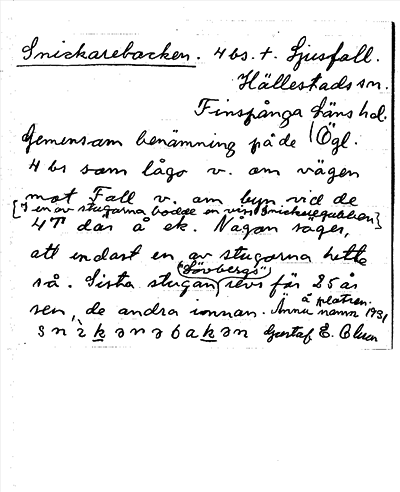 Snickarebacken. 4 bs. t. Ljusfall.
Hällestads sn.
Finspånga läns hd.
Gemensam benämning på de Ögl.
4 bs som lågo v. om vägen
mot Fall v. om byn vid de
[I en av stugorna bodde en viss]
4 T där å ek. Någon säger,
att endast en av stugorna hette
"Lövbergs"
så. Sista stugan revs för 25 år
å platsen.
sen, de andra innan. Ännu namn 1931
Gustaf E. Blum